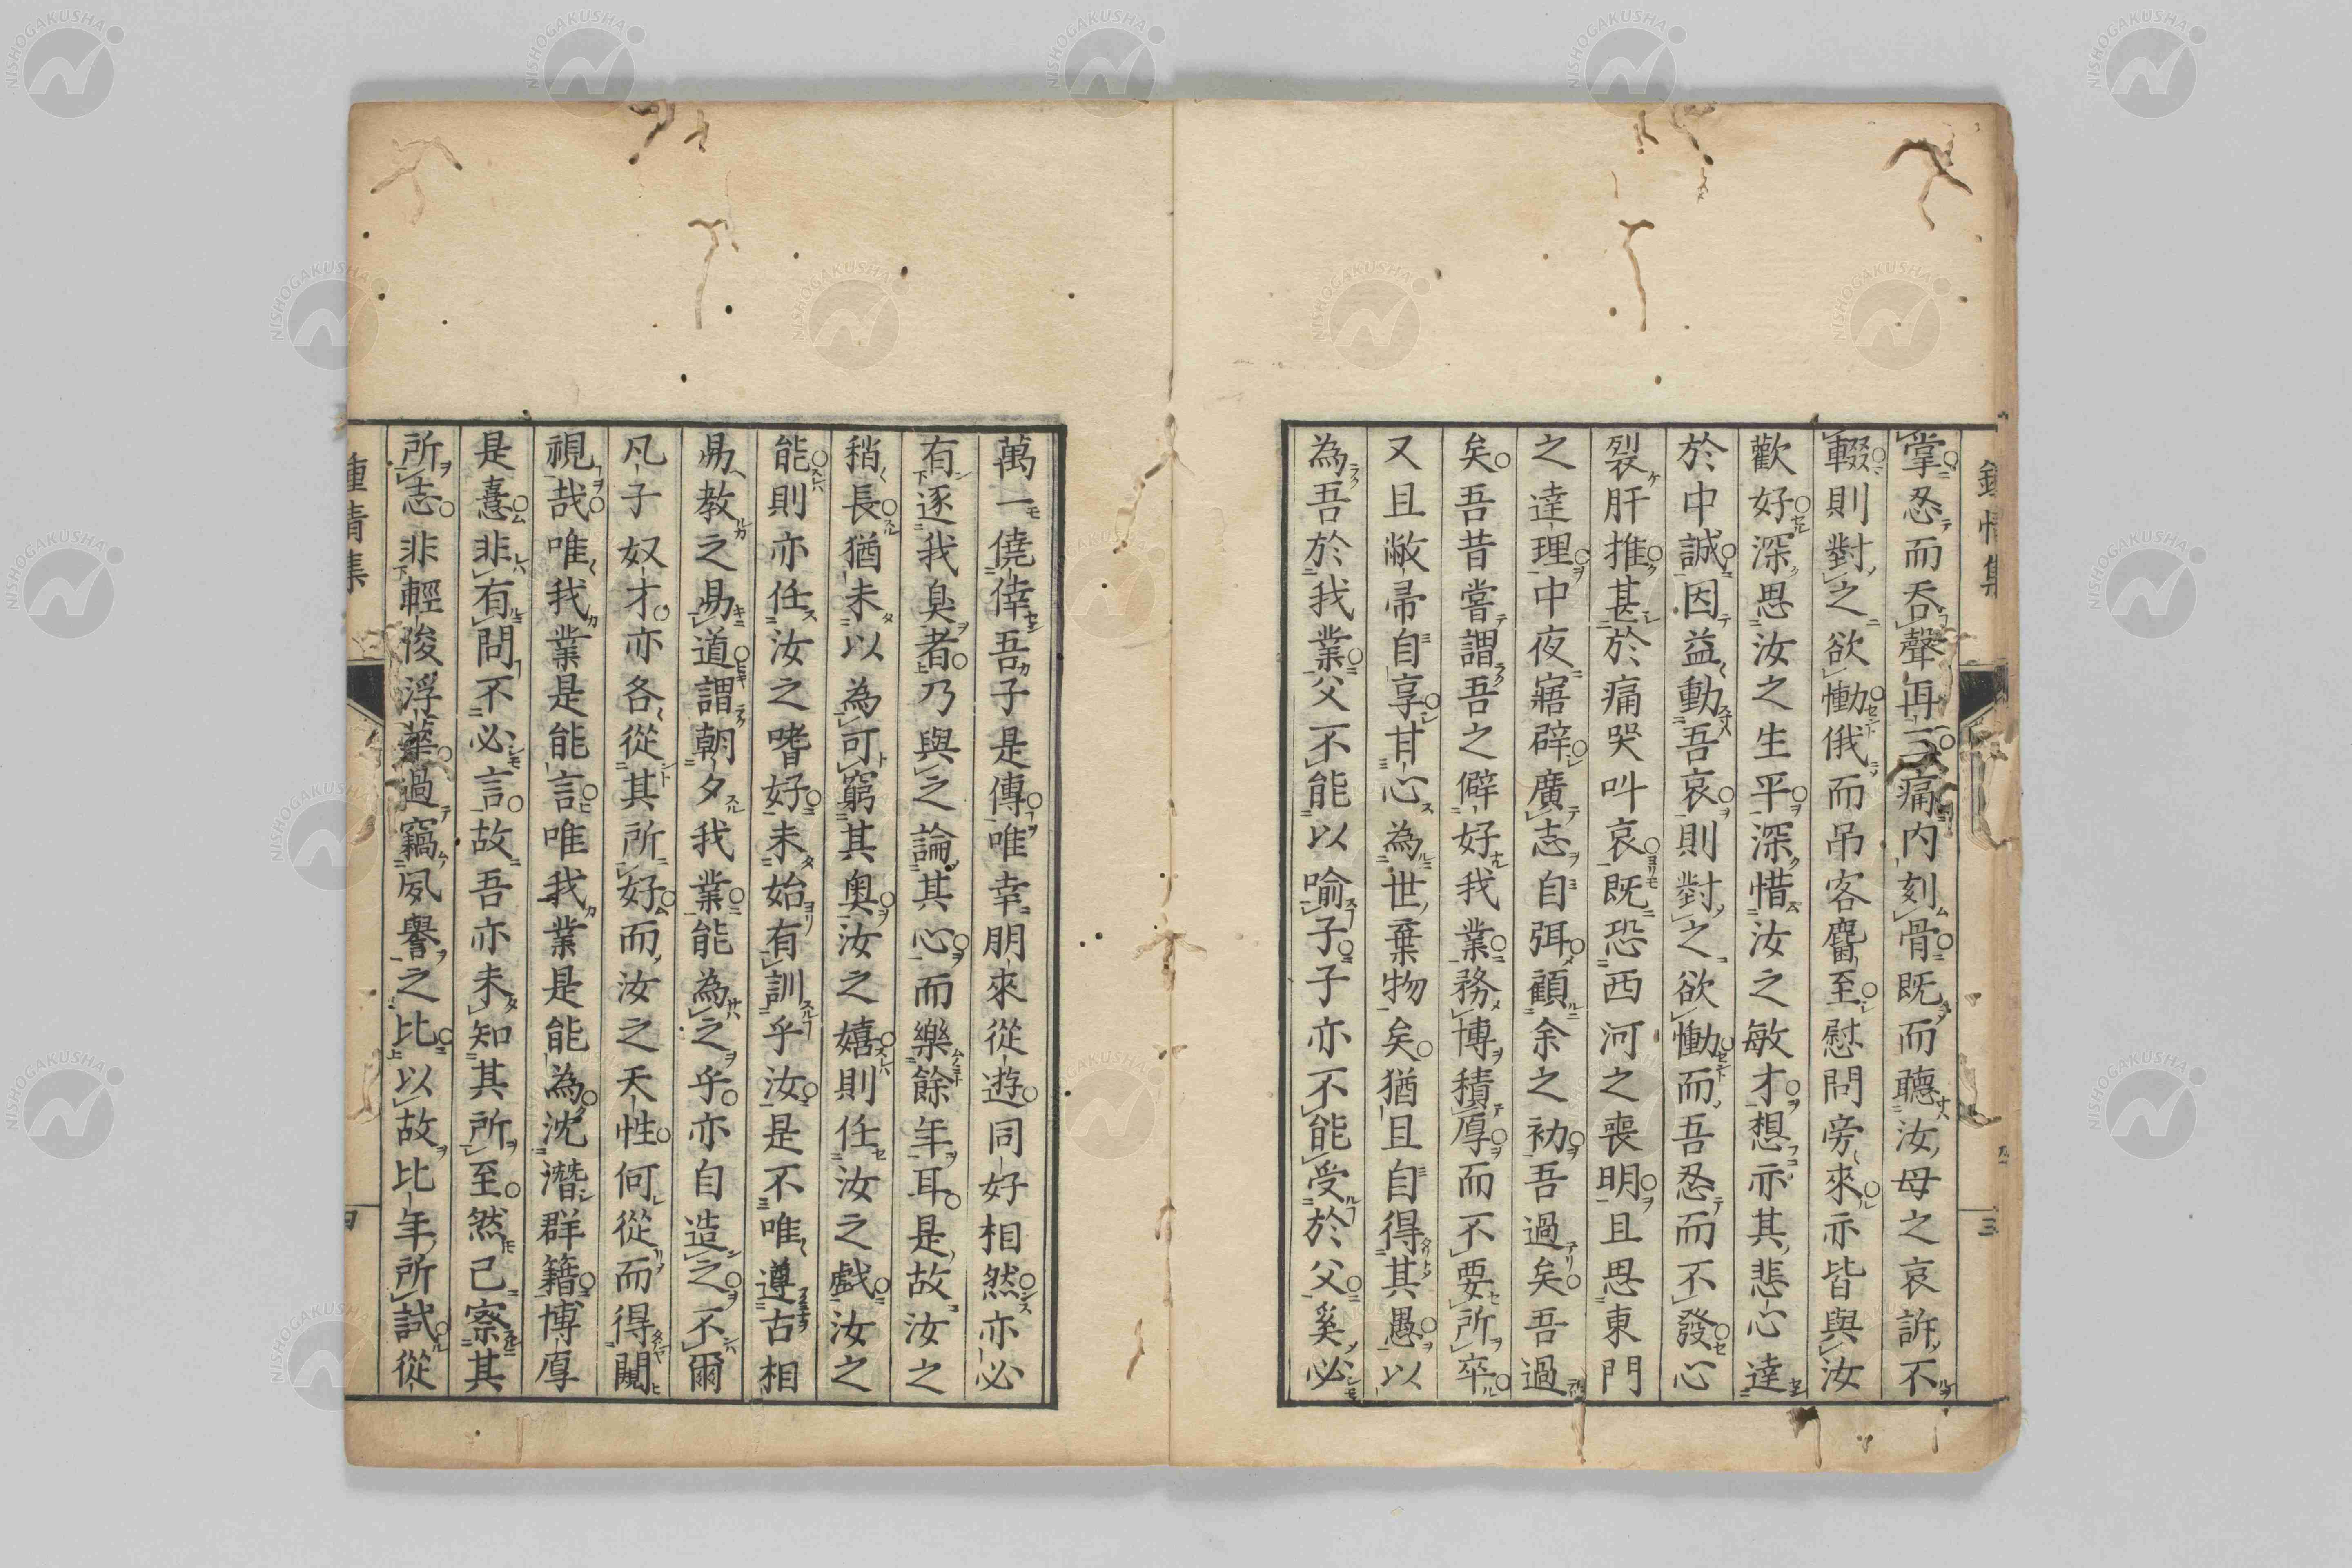 掌忍而呑聲再三痛内刻骨既而聽汝母之哀訴不
輟則對之欲慟俄而吊客麕至慰問旁來亦皆與汝
歡好深思汝之生平深惜汝之敏才想亦其悲心達
於中誠因益動吾哀則對之欲慟而吾忍而不發心
裂肝摧甚於痛哭叫哀既恐西河之喪明且思東門
之達理中夜寤辟廣志自弭顧余之初吾過矣吾過
矣吾昔嘗謂吾之僻好我業務博積厚而不要所卒
又且敝帚自享甘心為世棄物矣猶且自得其愚以
為吾於我業父不能以喻子子亦不能受於父奚必
萬一僥倖吾子是傳唯幸朋來從遊同好相然亦必
有逐我臭者乃與之論其心而樂餘年耳是故汝之
稍長猶未以為可窮其奧汝之嬉則任汝之戲汝之
能則亦任汝之嗜好未始有訓乎汝是不唯遵古相
易教之易道謂朝夕我業能為之乎亦自造之不爾
凡子奴才亦各從其所好而汝之天性何從而得闚
視哉唯我業是能言唯我業是能為沈潛群籍博厚
是憙非有問不必言故吾亦未知其所至然己察其
所志非輕俊浮華過竊夙譽之比以故比年所試從
鍾情集
三
NISHOGAKUSHA